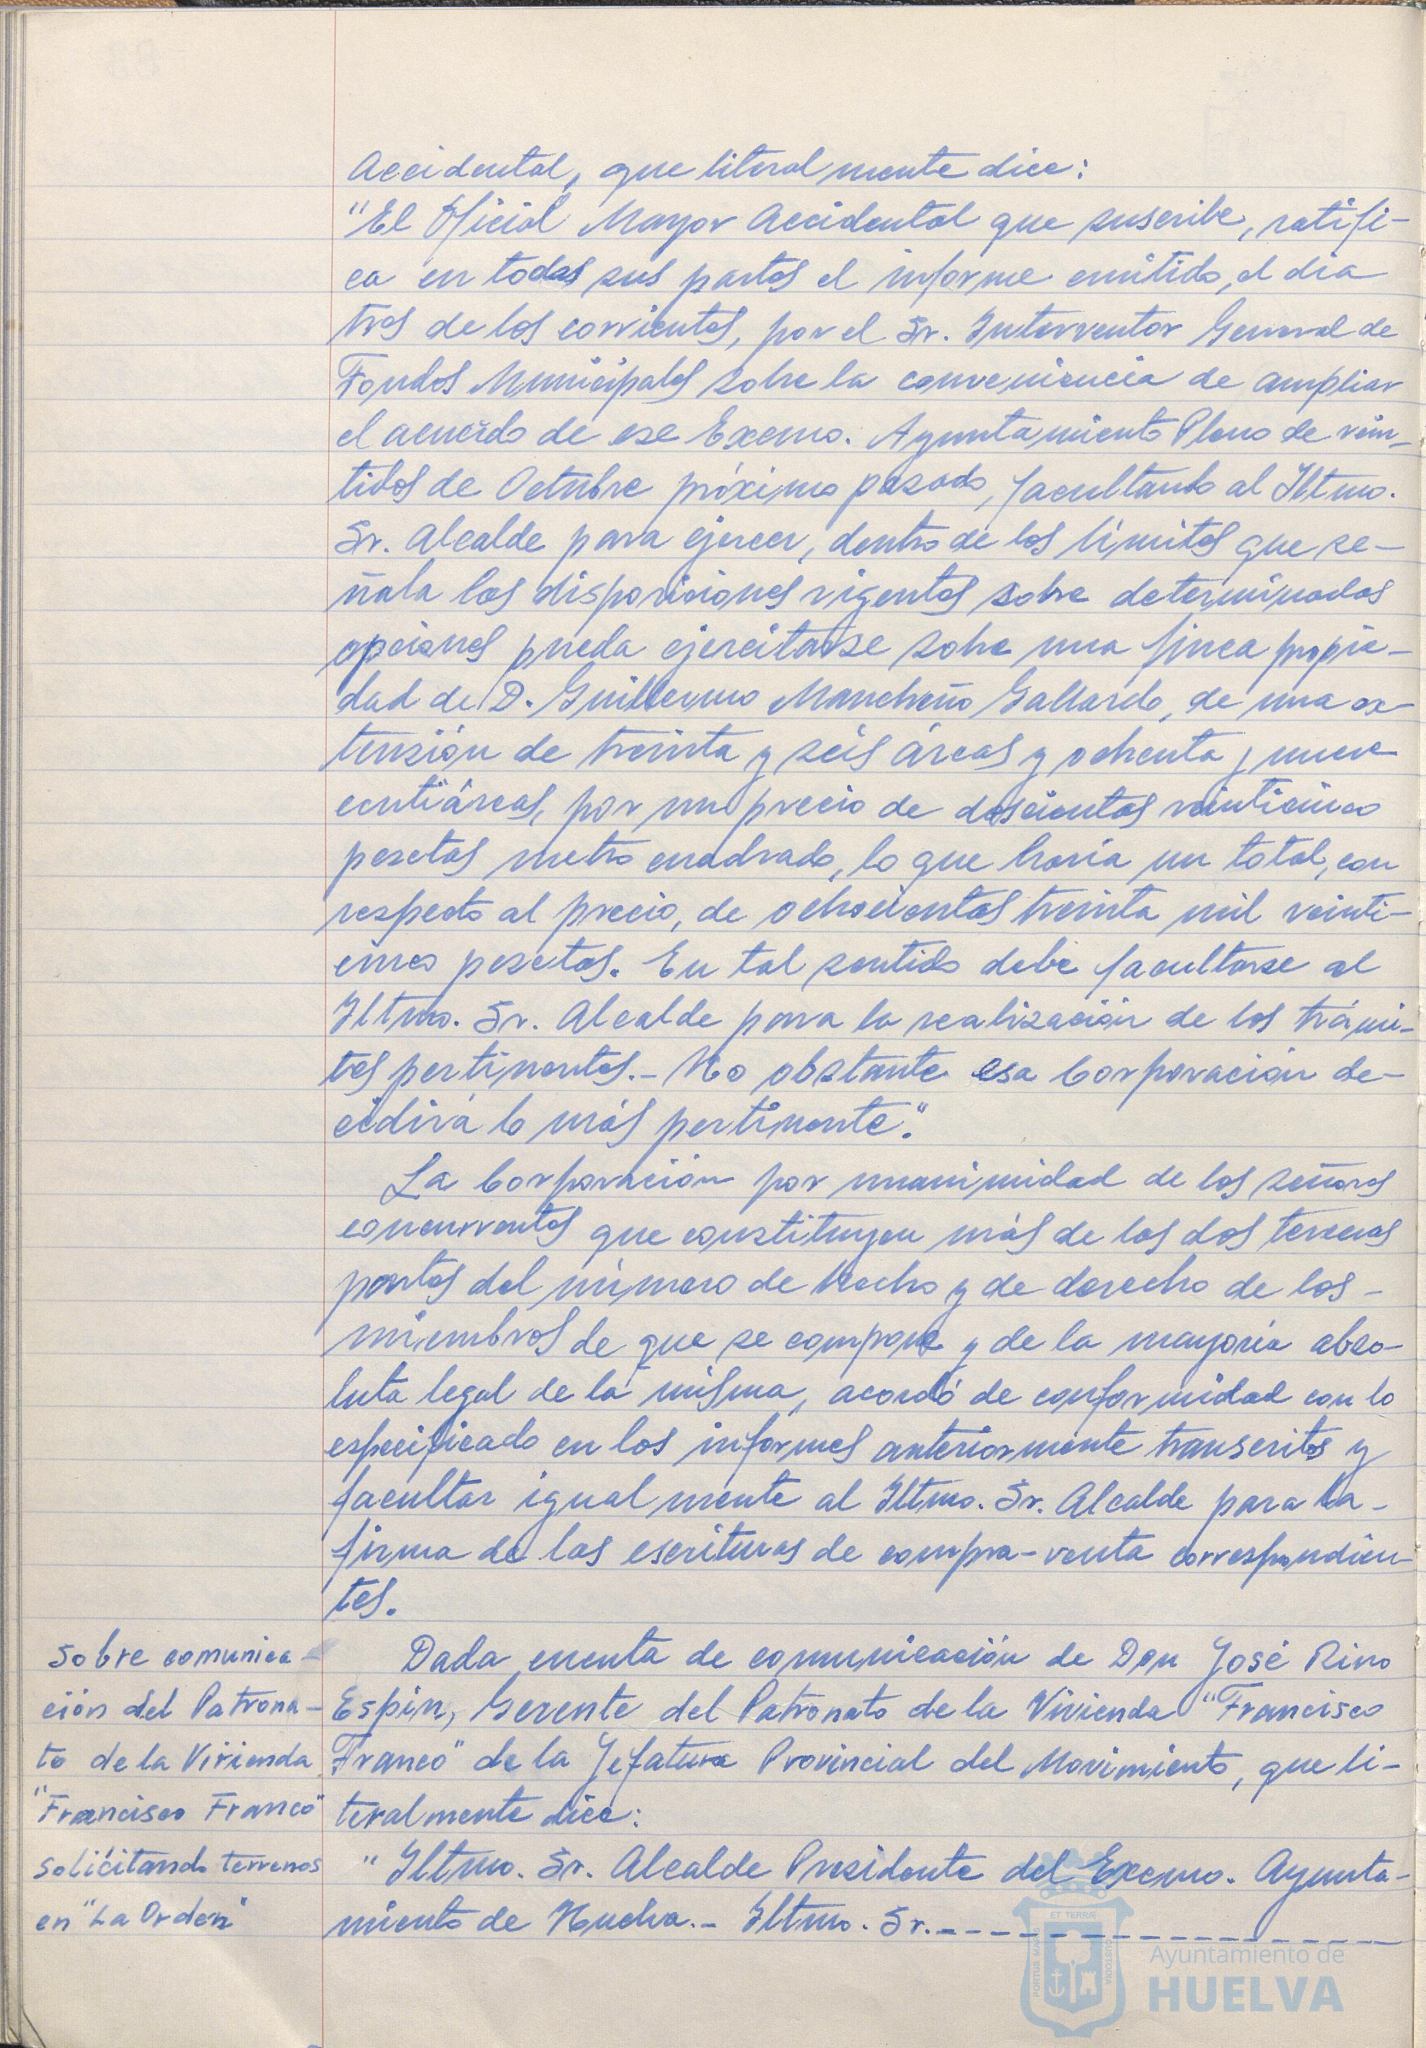 Accidental, que literalmente dice:
"El Oficial Mayor Accidental que suscribe, ratifi-
ca en todas sus partes el informe emitido, el dia
tres de los corrientes, por el Sr. Interventor General de
Fondos Municipales sobre la conveniencia de ampliar
el acuerdo de ese Excmo. Ayuntamiento Pleno de vein-
tidos de Octubre próximo pasado, facultando al Iltmo.
Sr. Alcalde para ejercer, dentro de los límites que se-
ñala las disposiciones vigentes sobre determinadas
opciones pueda ejercitarse sobre una finca propie-
dad de D. Guillermo Mancheño Gallardo, de una ex-
tensión de treinta y seis áreas y ochenta y nueve
centiáreas, por un precio de doscientas veinticinco
pesetas metro cuadrado, lo que haría un total, con
respecto al precio, de ochocientas treinta mil veinti-
cinco pesetas. En tal sentido debe facultarse al
Iltmo. Sr. Alcalde para la realización de los trámi-
tes pertinentes.- No obstante esa Corporación de-
cidirá lo más pertinente".
La Corporación por unanimidad de los señores
concurrentes que constituyen más de las dos terceras
partes del número de hecho y de derecho de los-
miembros de que se compone y de la mayoría abso-
luta legal de la misma, acordó de conformidad con lo
especificado en los informes anteriormente transcritos y
facultar igualmente al Iltmo. Sr. Alcalde para la-
firma de las escrituras de compra-venta correspondien-
tes.
Sobre comunica-
ción del Patrona-
to de la Vivienda
"Francisco Franco"
solicitando terrenos
en "La Orden"
Dada cuenta de comunicación de Don José Rino
Espín, Gerente del Patronato de la Vivienda "Francisco
Franco" de la Jefatura Provincial del Movimiento, que li-
teralmente dice:
"Iltmo. Sr. Alcalde Presidente del Excmo. Ayunta-
miento de Huelva.- Iltmo. Sr.--------
PORTUS MARIS
ET TERRAE
CUSTODIA
Ayuntamiento de
HUELVA